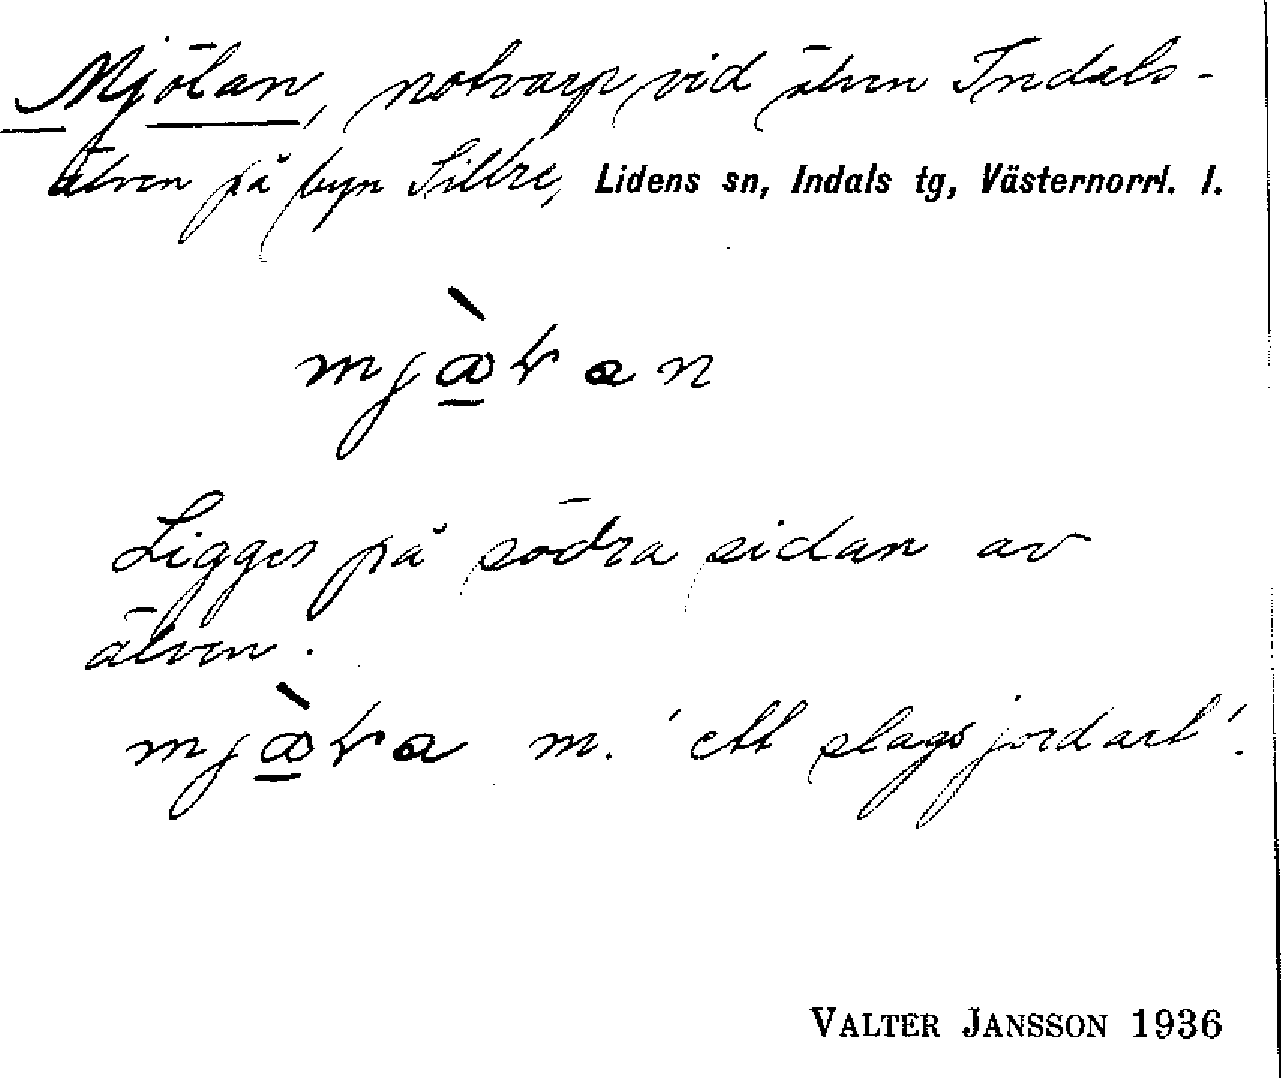 Mjölan, notvarp vid älven Indals-
älven på byn Sillre, Lidens sn, Indals tg, Västernorrl. l.
Ligger på södra sidan av
älven.
m. 'ett slags jordart'.
VALTER JANSSON 1936